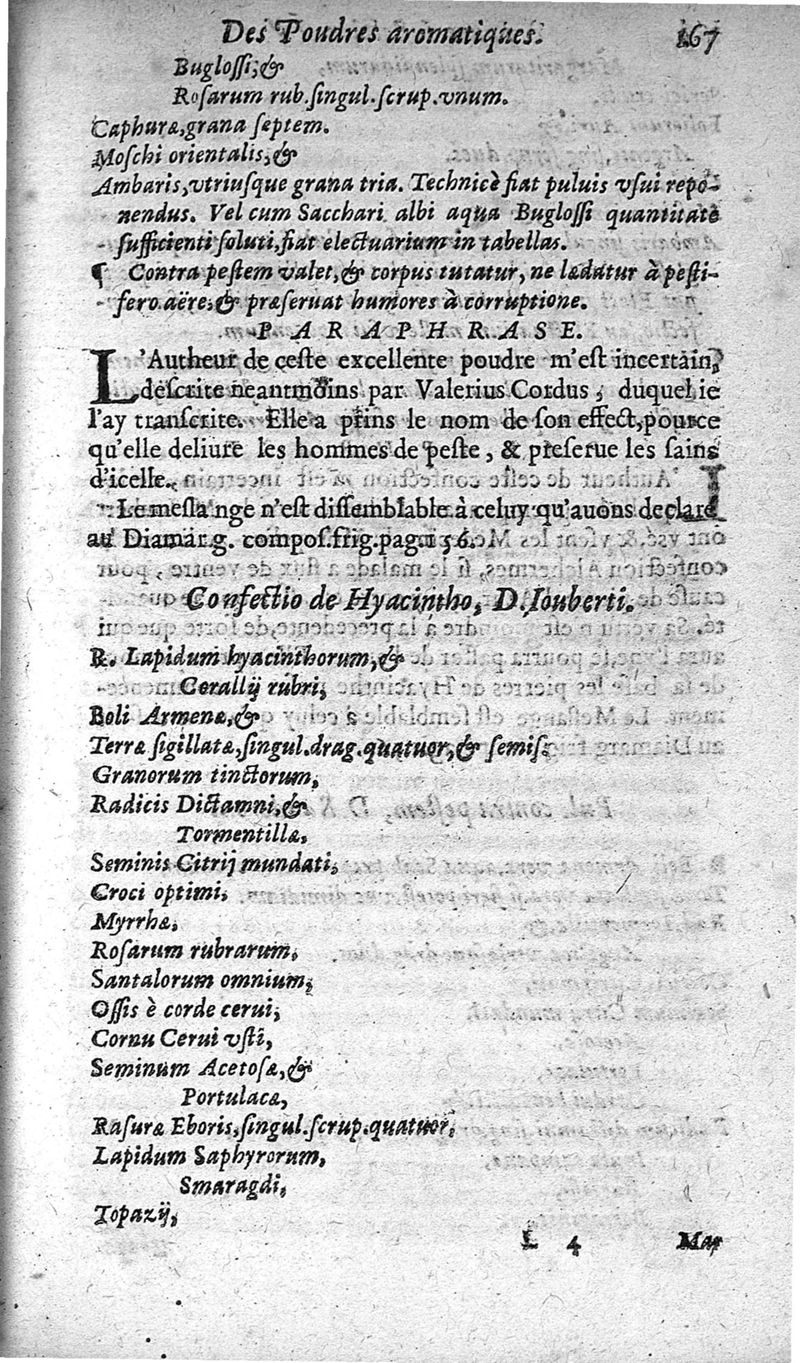 Des Poudres aromatiques. 167
Buglossi, &
Rosarum rub. singul. scrup. vnum.
Caphuræ, grana septem.
Moschi orientalis, &
Ambaris, vtriusque grana tria. Technicè fiat puluis vsui repo-
nendus. Vel cum Sacchari albi aqua Buglossi quantitate
sufficienti soluti, fiat electuarium in tabellas.
¶ Contra pestem valet, & corpus tutatur, ne lædatur à pesti-
fero aëre, & præseruat humores à corruptione.
PARAPHRASE.
L'Autheur de ceste excellente poudre m'est incertain,
descrite neantmoins par Valerius Cordus, duquel ie
l'ay transcrite. Elle a prins le nom de son effect, pource
qu'elle deliure les hommes de peste, & preserue les sains
d'icelle.
Le mesla nge n'est dissemblable à celuy qu'auons declaré
au Diamar.g. compos. frig. pag. 156.
Confectio de Hyacintho, D. Iouberti.
℞. Lapidum hyacinthorum, &
Corallij rubri,
Boli Armenæ, &
Terræ sigillatæ, singul. drag. quatuor, & semis.
Granorum tinctorum,
Radicis Dictamni, &
Tormentillæ,
Seminis Citrij mundati,
Croci optimi,
Myrrhæ,
Rosarum rubrarum,
Santalorum omnium,
Ossis è corde cerui,
Cornu Cerui vsti,
Seminum Acetosæ, &
Portulacæ,
Rasuræ Eboris, singul. scrup. quatuor,
Lapidum Saphyrorum,
Smaragdi,
Topazij,
L 4 Mar